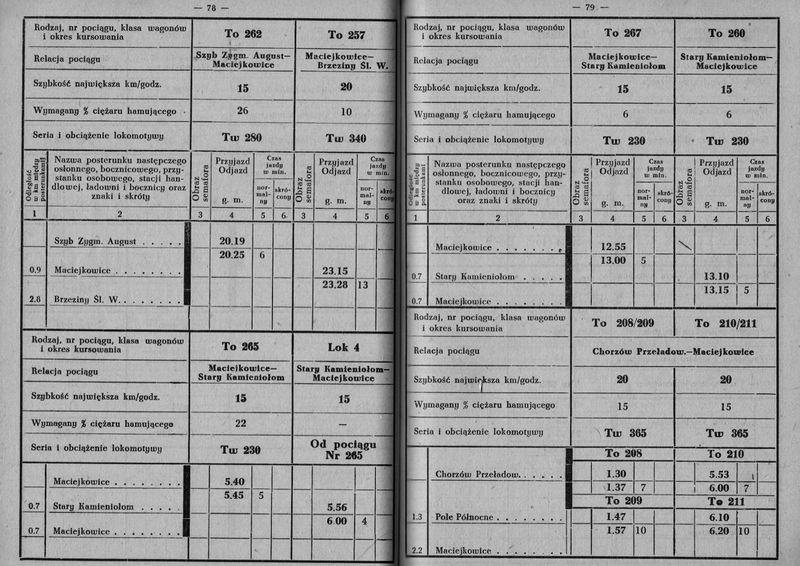 — 78 —
Rodzaj, nr pociągu, klasa wagonów
i okres kursowania
To 262
To 257
Relacja pociągu
Szyb Zygm. August—
Maciejkowice
Maciejkowice—
Brzeziny Śl. W.
Szybkość największa km/godz.
15
20
Wymagany % ciężaru hamującego
26
10
Seria i obciążenie lokomotywy
Tw 280
Tw 340
Odległość
w km między
posterunkami
Nazwa posterunku następczego
osłonnego, bocznicowego, przy-
stanku osobowego, stacji han-
dlowej, ładowni i bocznicy oraz
znaki i skróty
Obraz
semafora
Przyjazd
Odjazd
g. m.
Czas
jazdy
w min.
nor-
mal-
ny
skró-
cony
Obraz
semafora
Przyjazd
Odjazd
g. m.
Czas
jazdy
w min.
nor-
mal-
ny
skró-
cony
1 2 3 4 5 6 3 4 5 6
Szyb Zygm. August . . . . . 20.19
20.25 6
0.9 Maciejkowice . . . . . . . . 23.15
23.28 13
2.8 Brzeziny Śl. W. . . . . . . .
Rodzaj, nr pociągu, klasa wagonów
i okres kursowania
To 265
Lok 4
Relacja pociągu
Maciejkowice—
Stary Kamieniołom
Stary Kamieniołom—
Maciejkowice
Szybkość największa km/godz.
15
15
Wymagany % ciężaru hamującego
22
—
Seria i obciążenie lokomotywy
Tw 230
Od pociągu
Nr 265
Maciejkowice . . . . . . . . 5.40
5.45 5
0.7 Stary Kamieniołom . . . . . 5.56
6.00 4
0.7 Maciejkowice . . . . . . . .
— 79 —
Rodzaj, nr pociągu, klasa wagonów
i okres kursowania
To 267
To 260
Relacja pociągu
Maciejkowice—
Stary Kamieniołom
Stary Kamieniołom—
Maciejkowice
Szybkość największa km/godz.
15
15
Wymagany % ciężaru hamującego
6
6
Seria i obciążenie lokomotywy
Tw 230
Tw 230
Odległość
w km między
posterunkami
Nazwa posterunku następczego
osłonnego, bocznicowego, przy-
stanku osobowego, stacji han-
dlowej, ładowni i bocznicy
oraz znaki i skróty
Obraz
semafora
Przyjazd
Odjazd
g. m.
Czas
jazdy
w min.
nor-
mal-
ny
skró-
cony
Obraz
semafora
Przyjazd
Odjazd
g. m.
Czas
jazdy
w min.
nor-
mal-
ny
skró-
cony
1 2 3 4 5 6 3 4 5 6
Maciejkowice . . . . . . . . 12.55
13.00 5
0.7 Stary Kamieniołom . . . . . 13.10
13.15 5
0.7 Maciejkowice . . . . . . . .
Rodzaj, nr pociągu, klasa wagonów
i okres kursowania
To 208/209
To 210/211
Relacja pociągu
Chorzów Przeładow.—Maciejkowice
Szybkość największa km/godz.
20
20
Wymagany % ciężaru hamującego
15
15
Seria i obciążenie lokomotywy
Tw 365
Tw 365
To 208 To 210
Chorzów Przeładow. . . . . . 1.30 5.53
1.37 7 6.00 7
To 209 To 211
1.3 Pole Północne . . . . . . . . 1.47 6.10
1.57 10 6.20 10
2.2 Maciejkowice . . . . . . . .